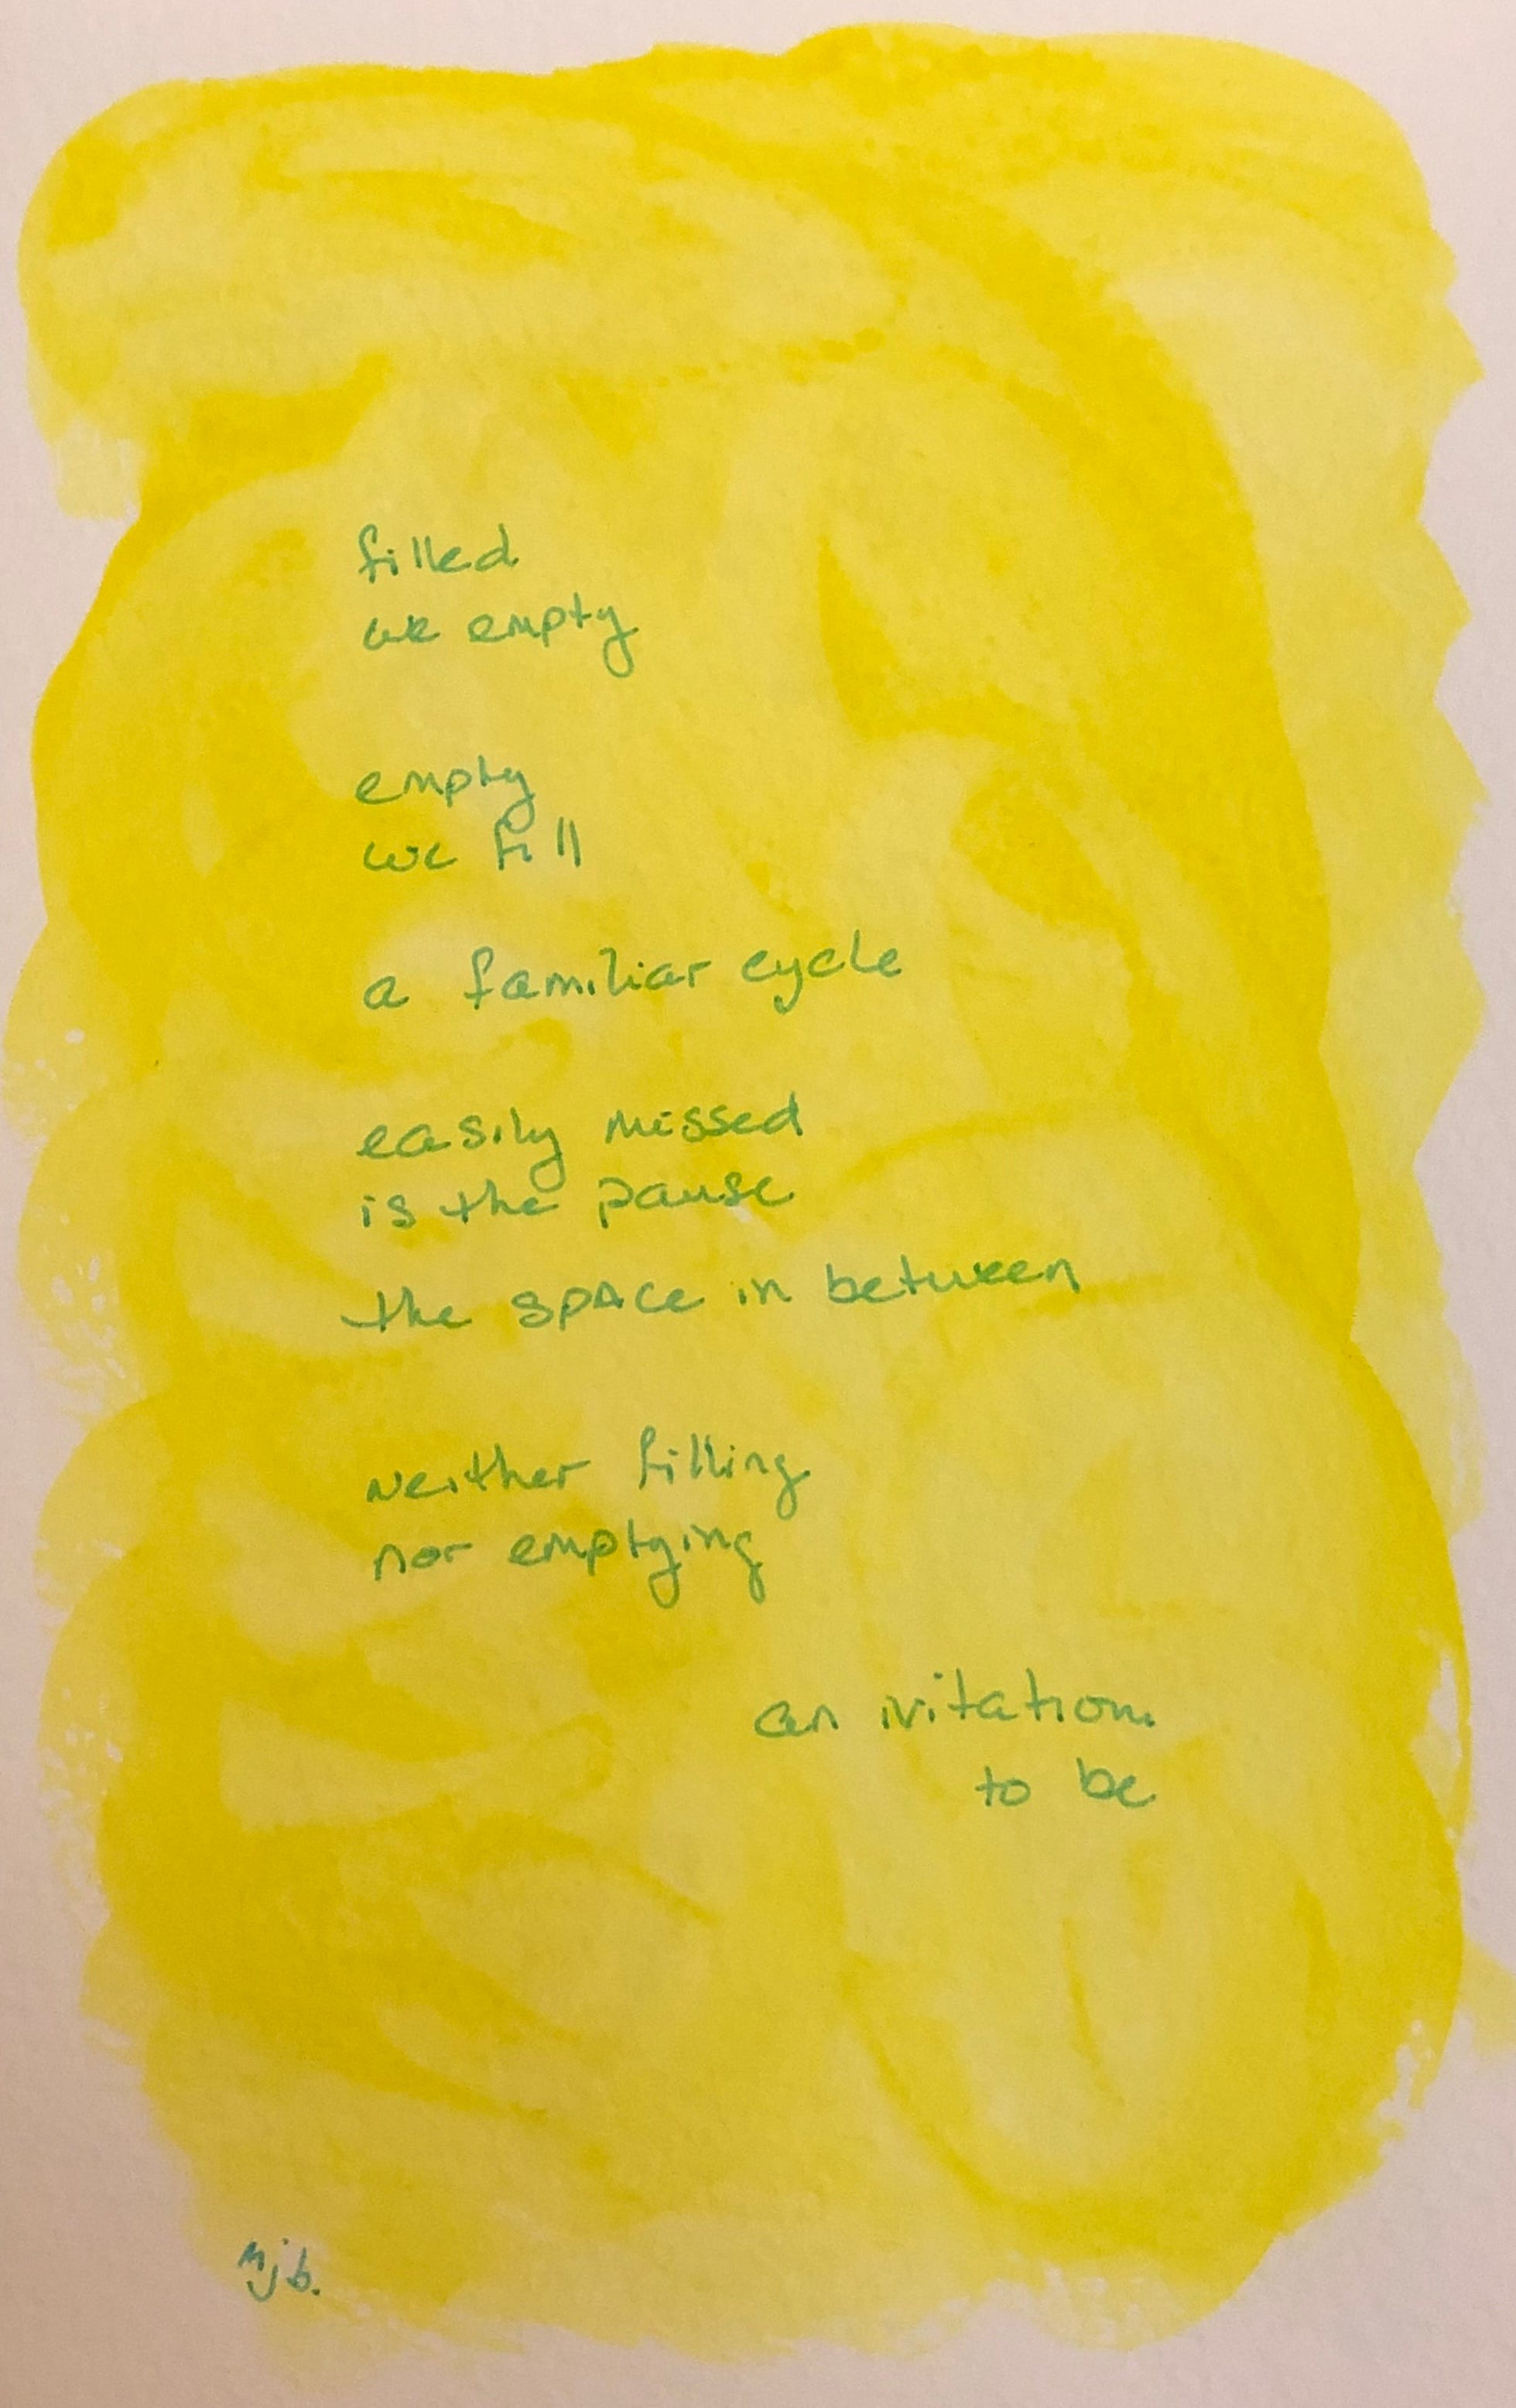 filled
we empty
empty
we fill
a familiar cycle
easily missed
is the pause
the space in between
neither filling
nor emptying
an ivitation
to be
mjb.